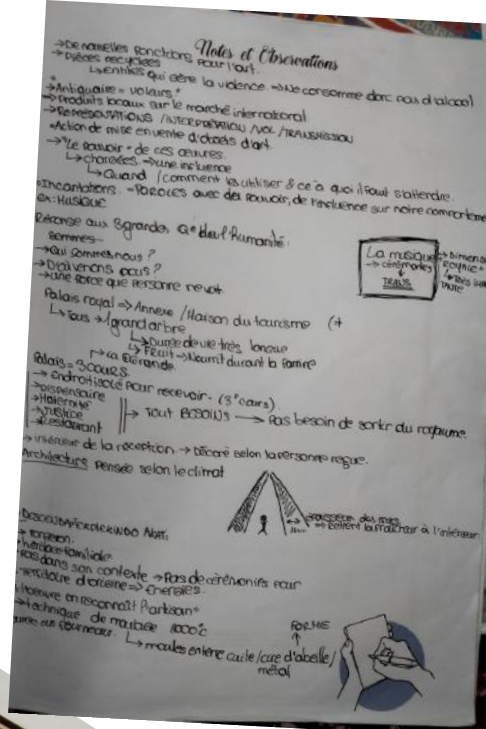 Notes et Observations
→De nouvelles fonctions pour l'art.
→Pièces recyclées
↳entités qui gère la violence. ⇒Ne consomme donc pas d'alcool
→Antiquaire = voleurs"
→Produits locaux sur le marché international
→REPRÉSENTATIONS / INTERPRÉTATION / VOL / TRANSMISSION
Action de mise en vente d'objets d'art.
→"Le pouvoir" de ces œuvres.
↳chargées ⇒une influence
↳Quand / comment les utiliser & ce à quoi il faut s'attendre.
Incantations. =PAROLES avec du pouvoir, de l'influence sur notre comportement
ex: Musique
Réponse aux 3 grandes Q° de l'humanité.
sommes
→Qui sommes nous ?
→D'où venons nous ?
→une force que personne ne voit
La musique
→ cérémonies
↓
TRANS
Palais royal ⇒ Annexe / Maison du tourisme
↳Tous → 1 grand arbre
↳Durée de vie très longue
↳Fruit→Nourrit durant la famine
Palais = 3 cours.
→ Endroit isolé pour recevoir. (3° cours)
→Dispensaire
→Maternité
→Justice
→Restaurant
→ Tout BESOINS → Pas besoin de sortir du royaume.
→ intérieur de la réception → Décoré selon la personne reçue.
Architecture pensée selon le climat
épaisseur des murs
⇒ Retient la fraîcheur à l'intérieur
→ Forgeron.
héritage familiale
Pas dans son contexte → Pas de cérémonies pour
territoire d'origine ⇒ Énergies.
reconnaît l'artisan"
→technique de moulage 1000°C
↳ moules en terre cuite / cire d'abeille /
métal
FORME